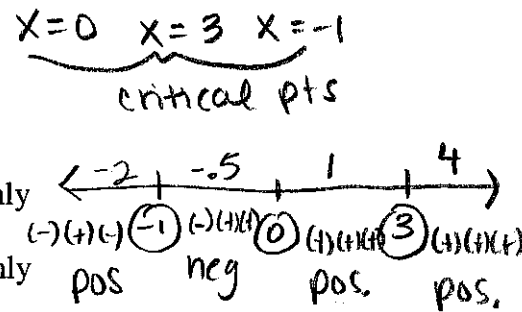 x=0 x=3 x=-1
critical pts
-2 -.5 1 4
nly
(-)(+)(-) -1 (-)(+)(+) 0 (+)(+)(+) 3 (+)(+)(+)
nly
pos neg pos. pos.